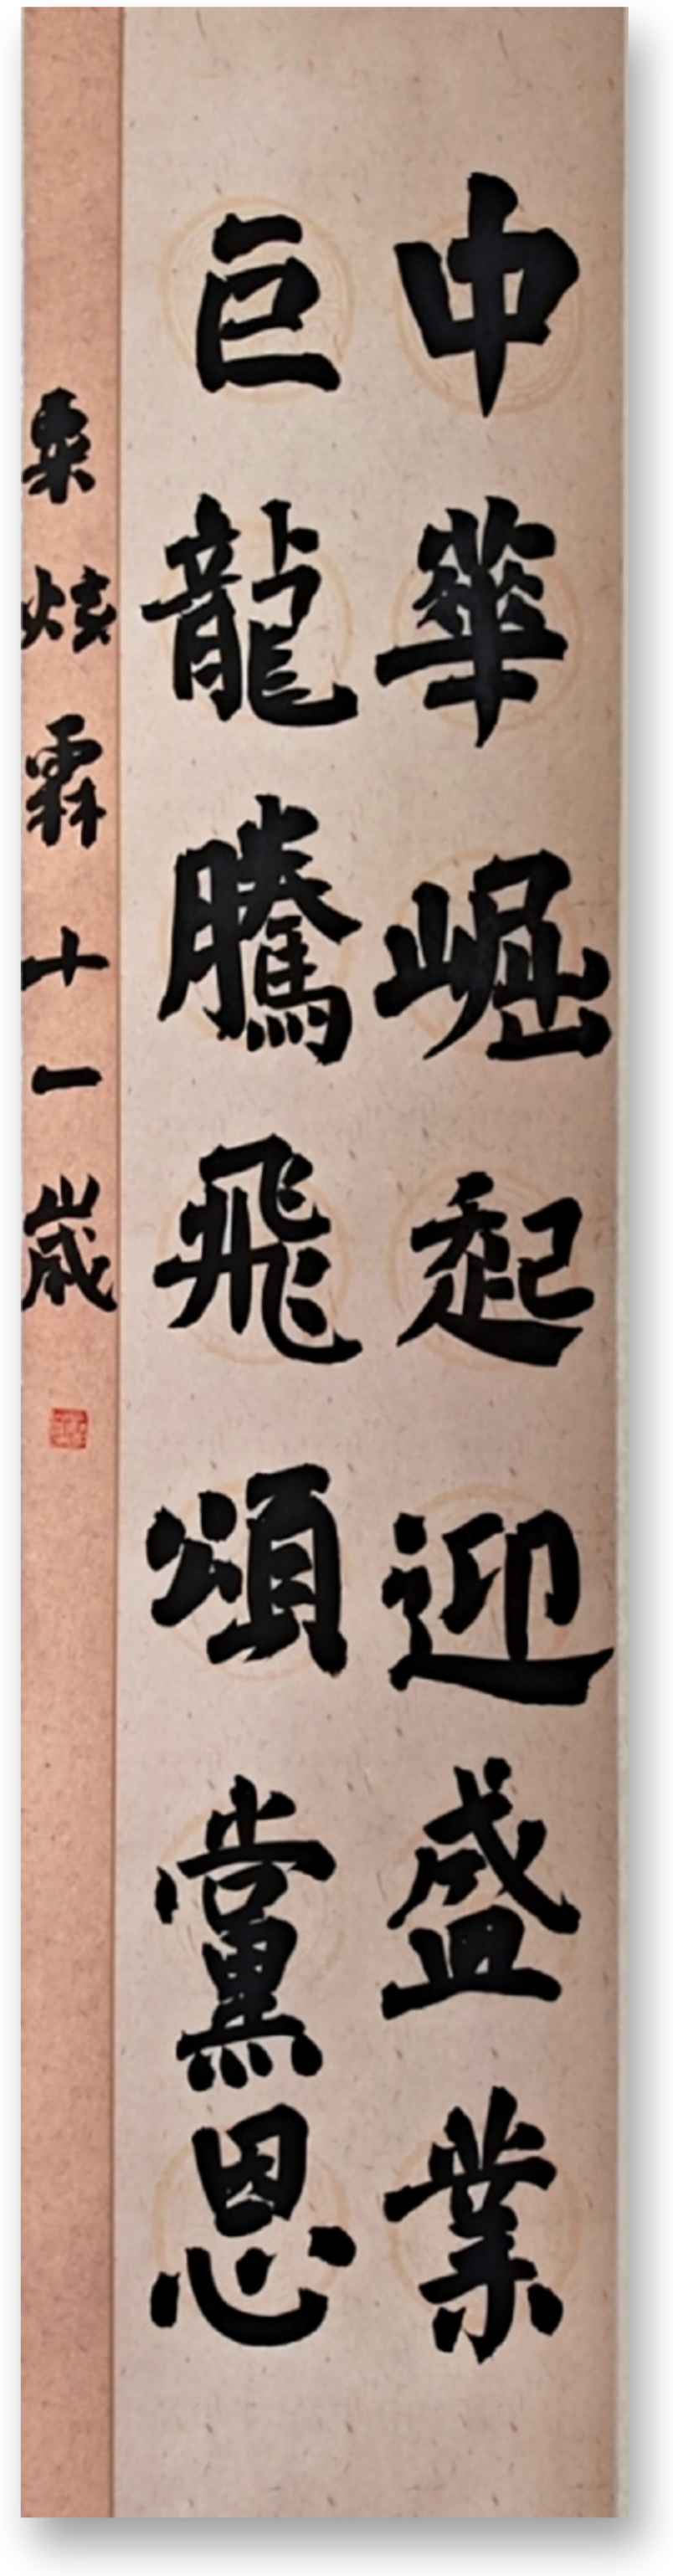 中華崛起迎盛業
巨龍騰飛頌黨恩
粟炫霖十一歲